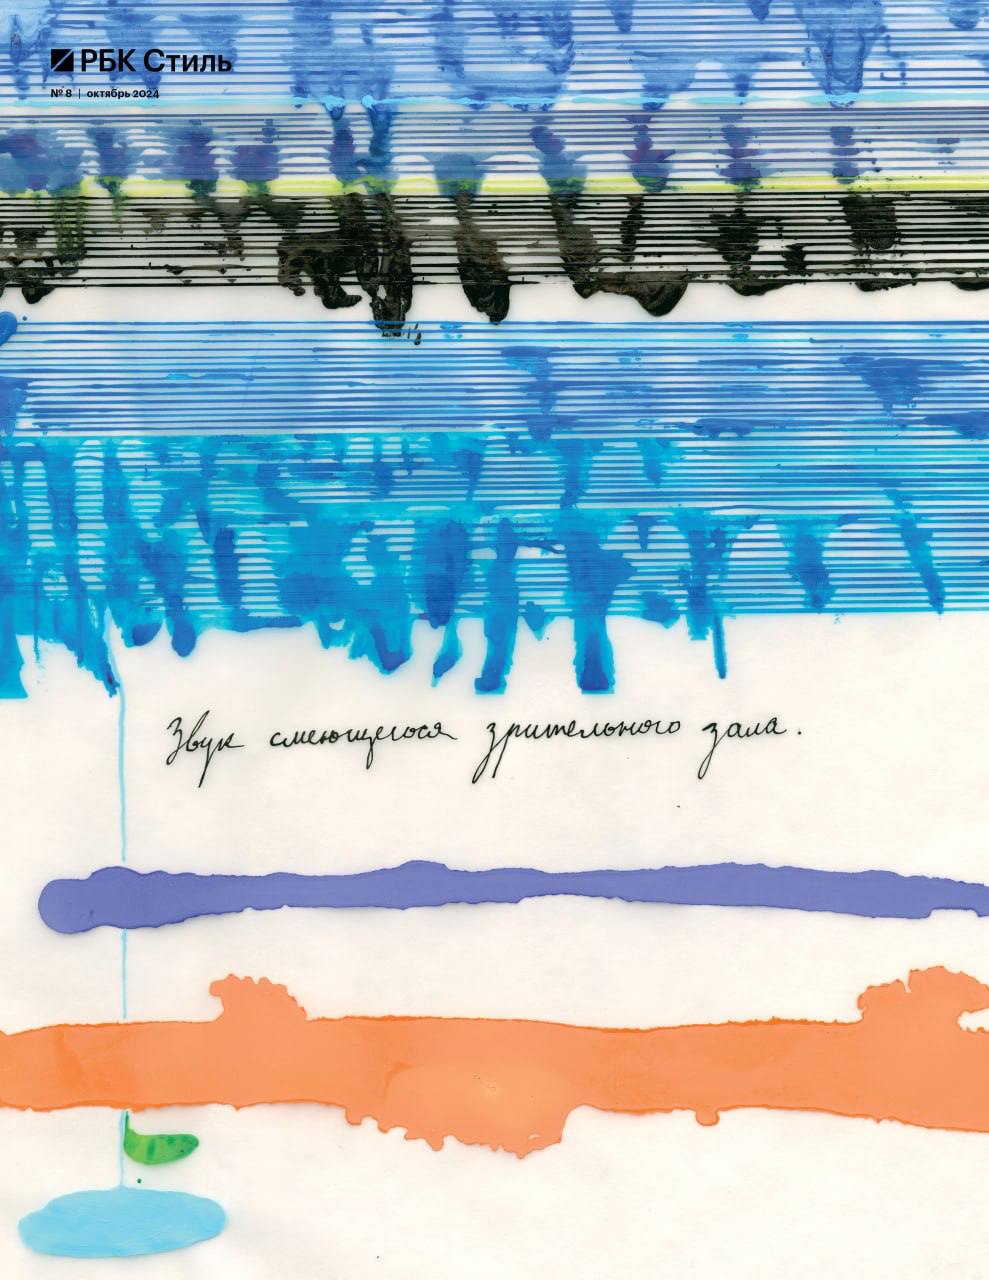 РБК Стиль
№ 8 | октябрь 2024
Звук смеющегося зрительного зала.